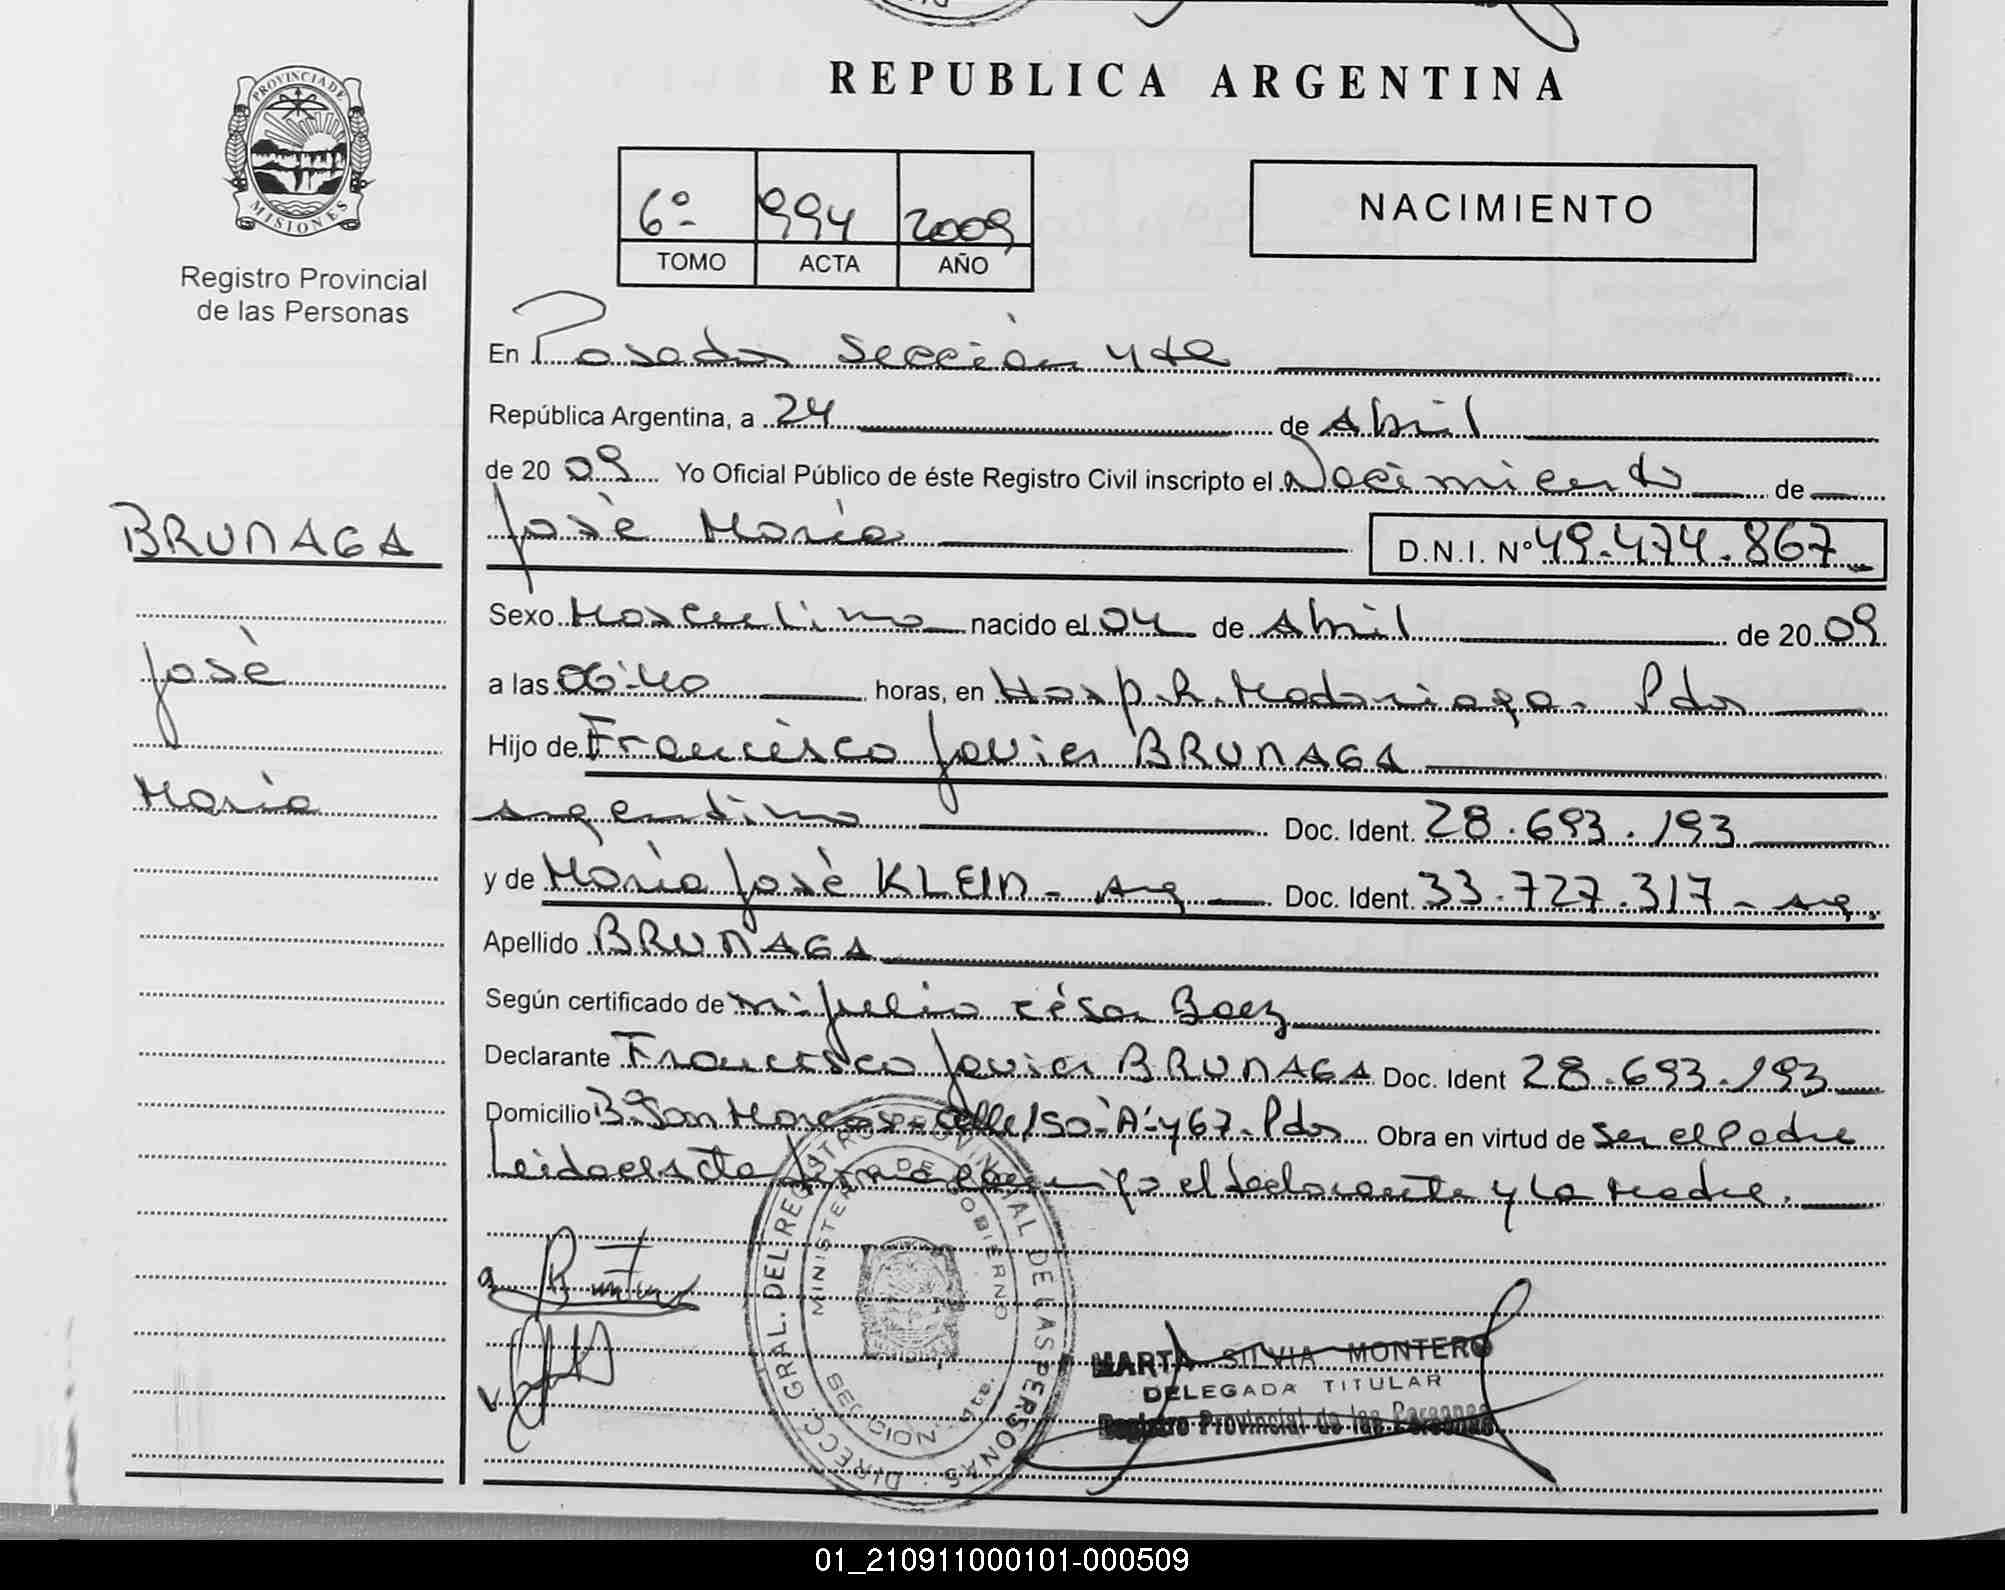 REPUBLICA ARGENTINA
PROVINCIA DE
MISIONES
Registro Provincial
de las Personas
6º 994 2009
TOMO ACTA AÑO
NACIMIENTO
En Posadas Sección 4ta
República Argentina, a 24 de Abril
de 2009 Yo Oficial Público de éste Registro Civil inscripto el Nacimiento de
José María D.N.I. Nº 49.474.867
BRUNAGA
José
María
Sexo Masculino nacido el 04 de Abril de 2009
a las 06:40 horas, en Hosp. R. Madariaga. Pdas
Hijo de Francisco Javier BRUNAGA
argentino Doc. Ident. 28.693.193
y de María José KLEIN - Arg Doc. Ident. 33.727.317 - Arg.
Apellido BRUNAGA
Según certificado de César Baez
Declarante Francisco Javier BRUNAGA Doc. Ident 28.693.193
Domicilio Bº San Marcos - calle 150 "A" y 67. Pdas Obra en virtud de ser el Padre
Leida el Acta firma conmigo el declarante y la Madre.
DIRECC. GRAL. DEL REGISTRO PROVINCIAL DE LAS PERSONAS
MINISTERIO DE GOBIERNO
MARTA SILVIA MONTERO
DELEGADA TITULAR
Registro Provincial de las Personas
01_210911000101-000509